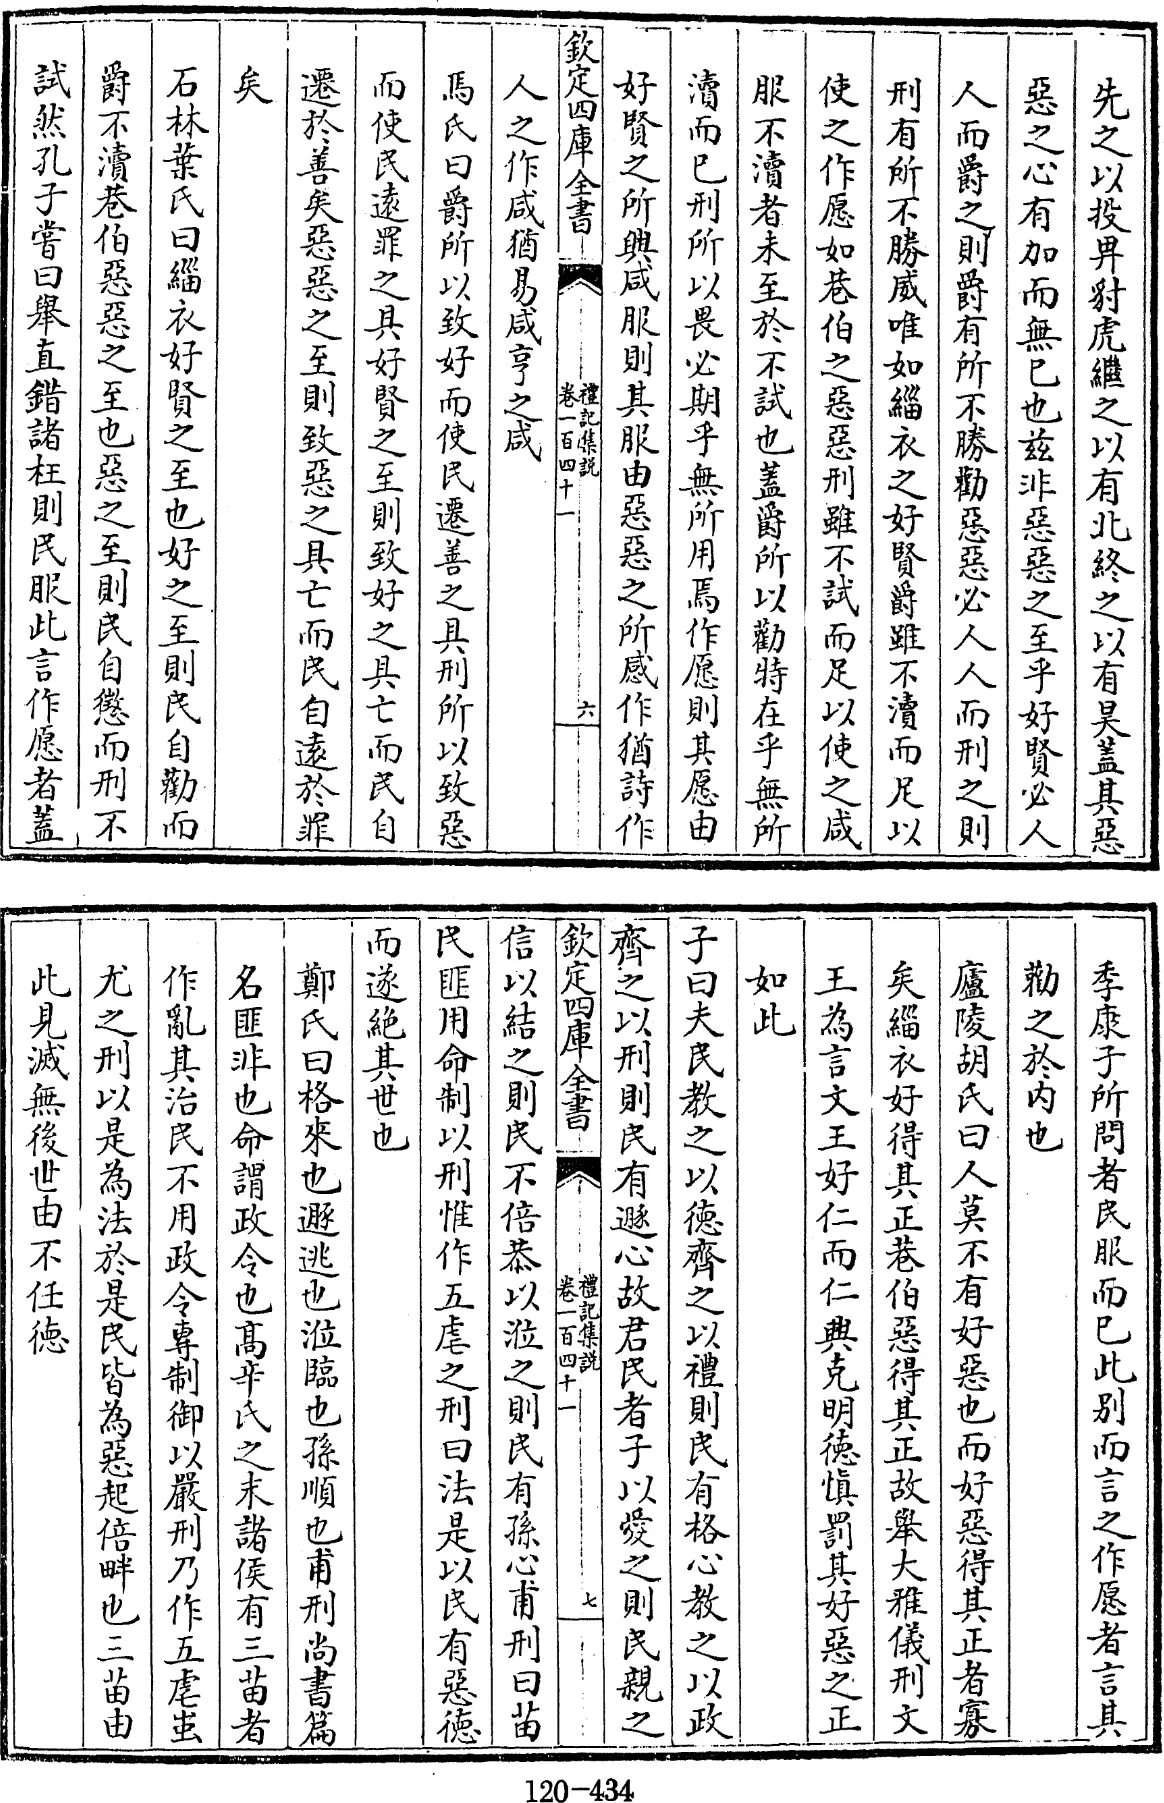 先之以投畀豺虎繼之以有北終之以有昊蓋其惡
惡之心有加而無已也兹非惡惡之至乎好賢必人
人而爵之則爵有所不勝勸惡惡必人人而刑之則
刑有所不勝威唯如緇衣之好賢爵雖不瀆而足以
使之作愿如巷伯之惡惡刑雖不試而足以使之咸
服不瀆者未至於不試也蓋爵所以勸特在乎無所
瀆而已刑所以畏必期乎無所用焉作愿則其愿由
好賢之所興咸服則其服由惡惡之所感作猶詩作
欽定四庫全書
禮記集説
卷一百四十一
六
人之作咸猶易咸亨之咸
馬氏曰爵所以致好而使民遷善之具刑所以致惡
而使民遠罪之具好賢之至則致好之具亡而民自
遷於善矣惡惡之至則致惡之具亡而民自遠於罪
矣
石林葉氏曰緇衣好賢之至也好之至則民自勸而
爵不瀆巷伯惡惡之至也惡之至則民自懲而刑不
試然孔子嘗曰舉直錯諸枉則民服此言作愿者蓋
季康子所問者民服而已此别而言之作愿者言其
勸之於内也
廬陵胡氏曰人莫不有好惡也而好惡得其正者寡
矣緇衣好得其正巷伯惡得其正故舉大雅儀刑文
王為言文王好仁而仁興克明德慎罰其好惡之正
如此
子曰夫民教之以德齊之以禮則民有格心教之以政
齊之以刑則民有遯心故君民者子以愛之則民親之
欽定四庫全書
禮記集説
卷一百四十一
七
信以結之則民不倍恭以涖之則民有孫心甫刑曰苗
民匪用命制以刑惟作五虐之刑曰法是以民有惡德
而遂絶其世也
鄭氏曰格來也遯逃也涖臨也孫順也甫刑尚書篇
名匪非也命謂政令也髙辛氏之末諸侯有三苗者
作亂其治民不用政令專制御以嚴刑乃作五虐蚩
尤之刑以是為法於是民皆為惡起倍畔也三苗由
此見滅無後世由不任德
120-434